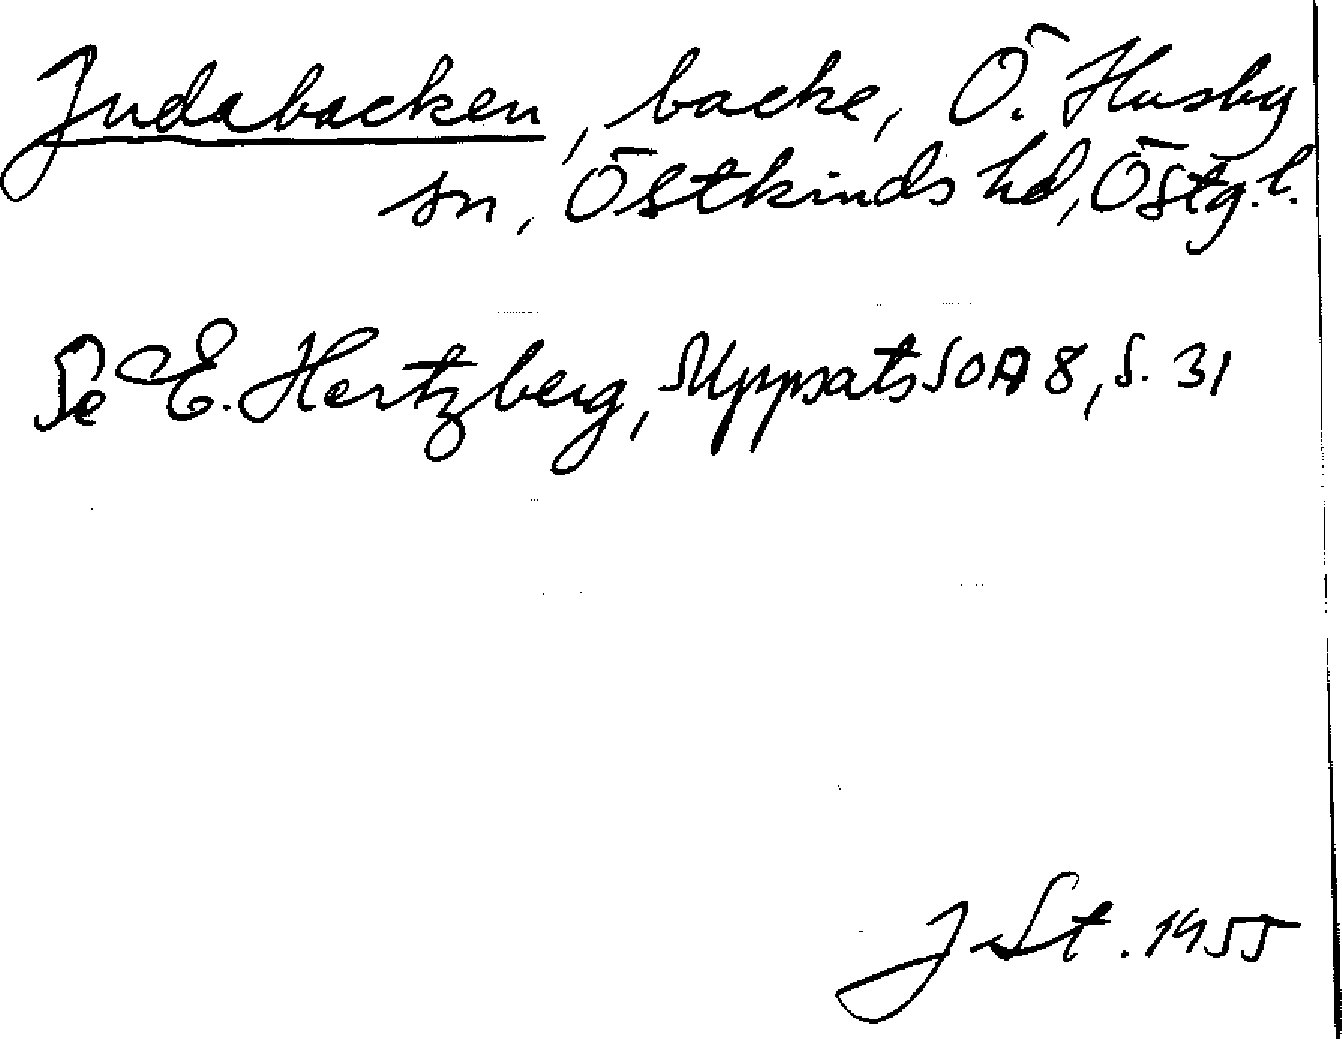 Judabacken, backe, Ö. Husby
sn, Östkinds hd, Östg.l.
Se E. Hertzberg, Uppsats SOA 8, s. 31
J St. 1955